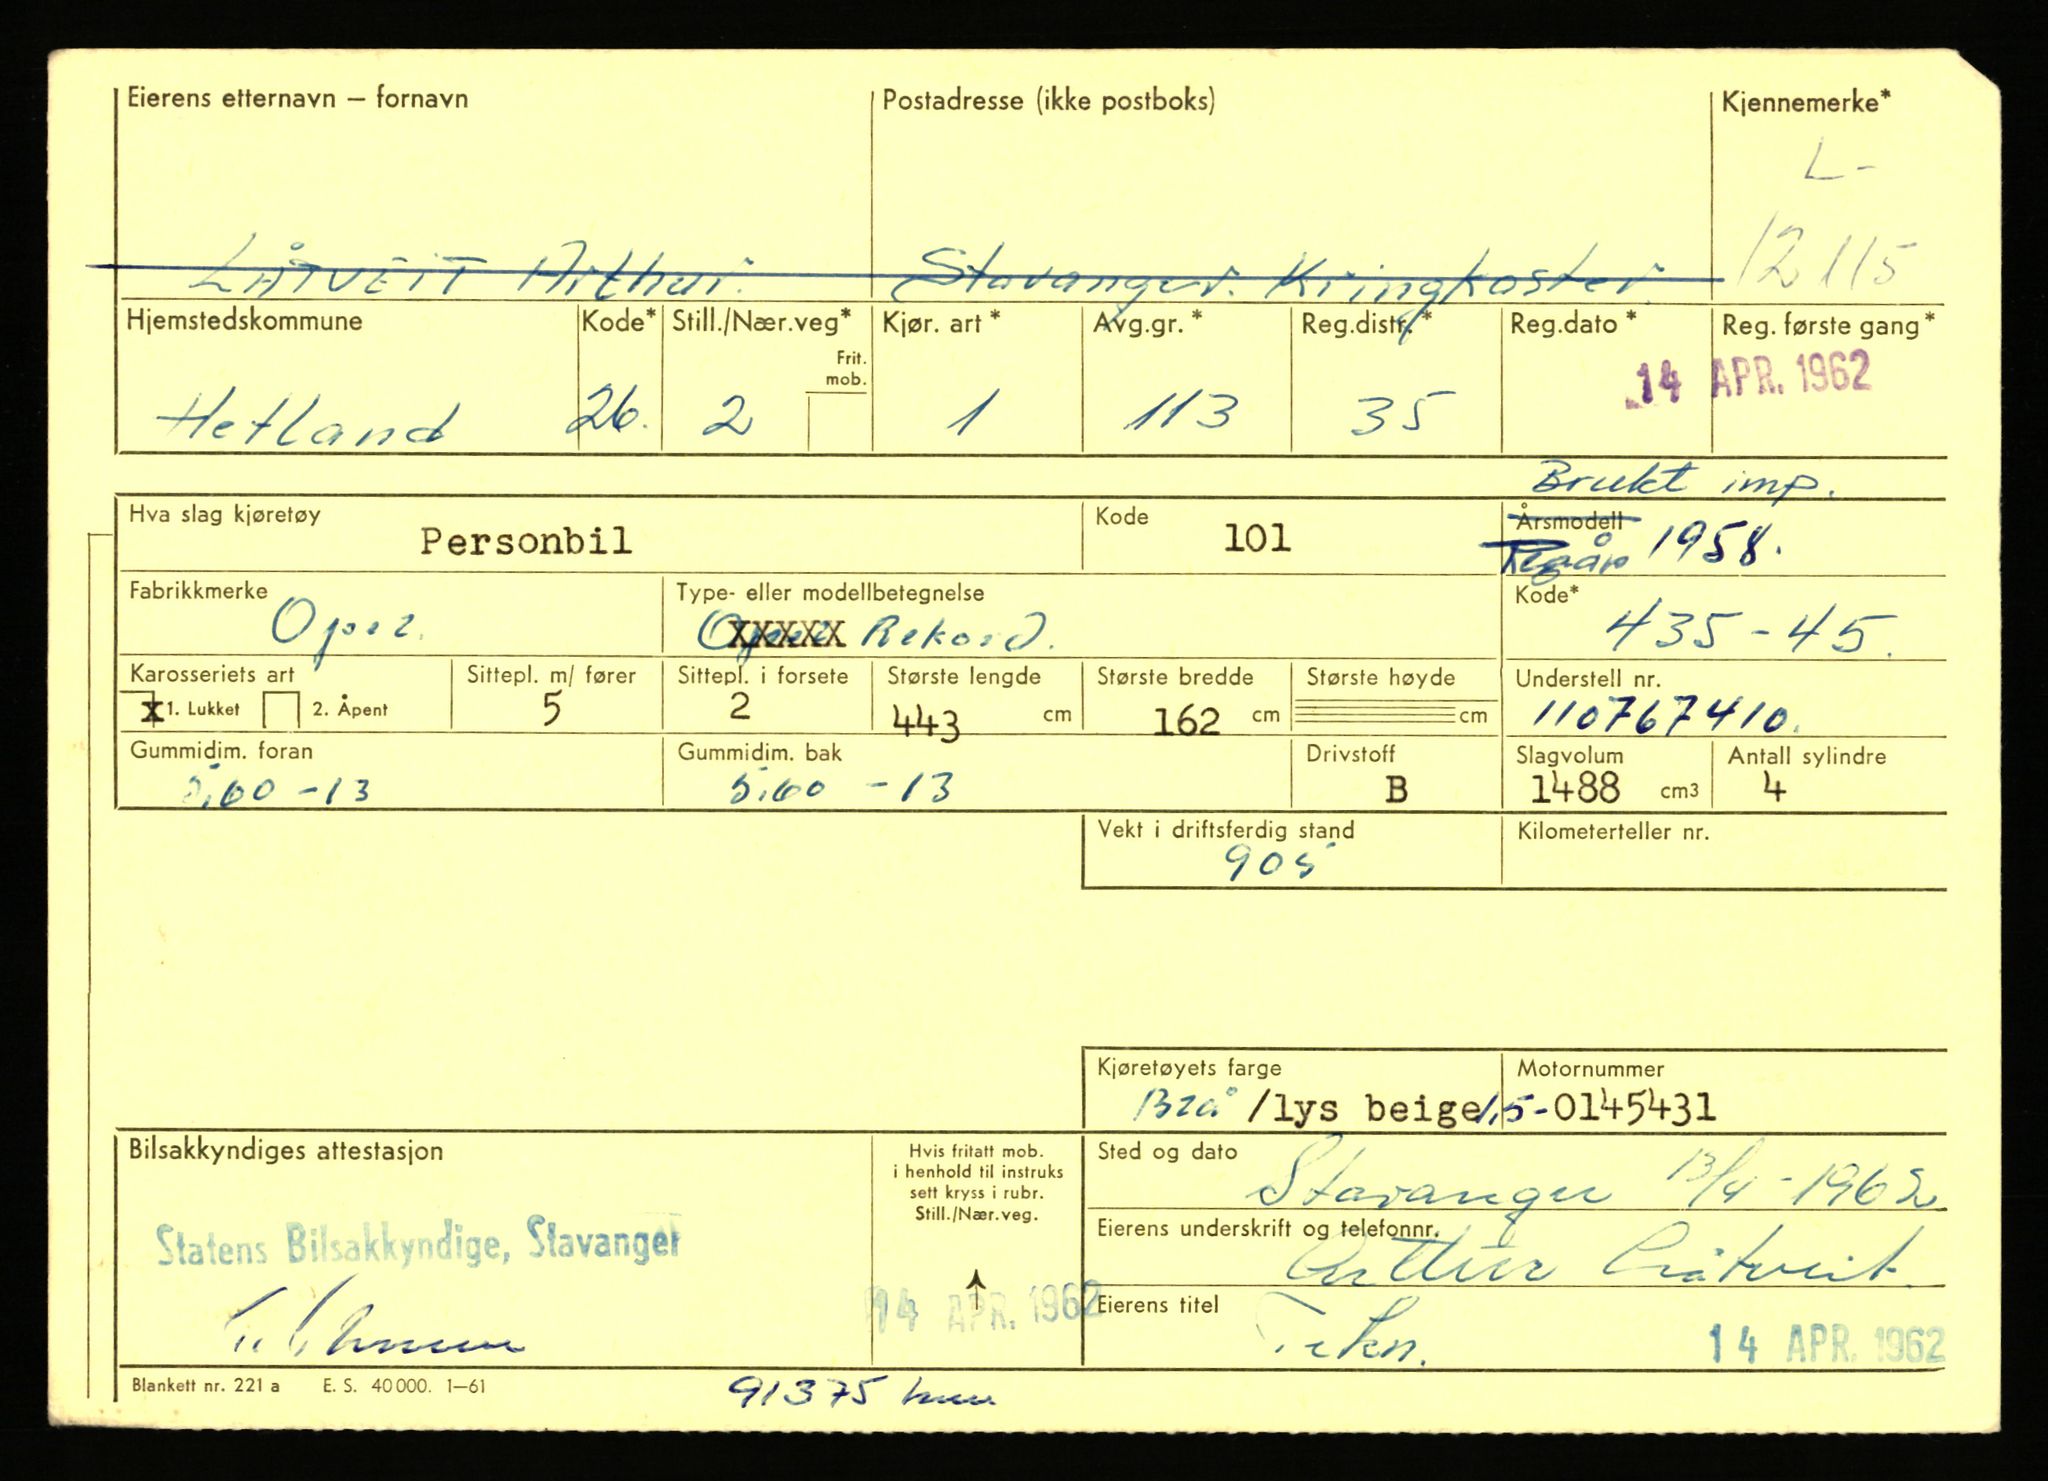 Eierens etternavn – fornavn Postadresse (ikke postboks) Kjennemerke*
L-
LÅTVEIT Arthur. Stavanger. Kringkaster. 12115
Hjemstedskommune Kode* Still./Nær.veg* Kjør. art* Avg.gr.* Reg.distr.* Reg.dato* Reg. første gang*
Frit. mob.
14 APR. 1962
Hetland 26. 2 1 113 35
Brukt imp.
Hva slag kjøretøy Personbil Kode 101 Årsmodell
Regår 1958.
Fabrikkmerke Type- eller modellbetegnelse Kode*
Opel. Opel Rekord. 435-45.
Karosseriets art Sittepl. m/ fører Sittepl. i forsete Største lengde Største bredde Største høyde Understell nr.
x 1. Lukket 2. Åpent 5 2 443 cm 162 cm cm 110767410.
Gummidim. foran Gummidim. bak Drivstoff Slagvolum Antall sylindre
5.60 -13 5.60 -13 B 1488 cm3 4
Vekt i driftsferdig stand Kilometerteller nr.
905
Kjøretøyets farge Motornummer
Blå /lys beige 1,5-0145431
Bilsakkyndiges attestasjon Hvis fritatt mob.
i henhold til instruks
sett kryss i rubr.
Still./Nær.veg.
Sted og dato
Stavanger 13/4-1962
Statens Bilsakkyndige, Stavanger
Eierens underskrift og telefonnr.
Arthur Låtveit.
14 APR. 1962
Eierens titel
Tekn.
14 APR. 1962
Blankett nr. 221 a E. S. 40 000. 1–61 91375